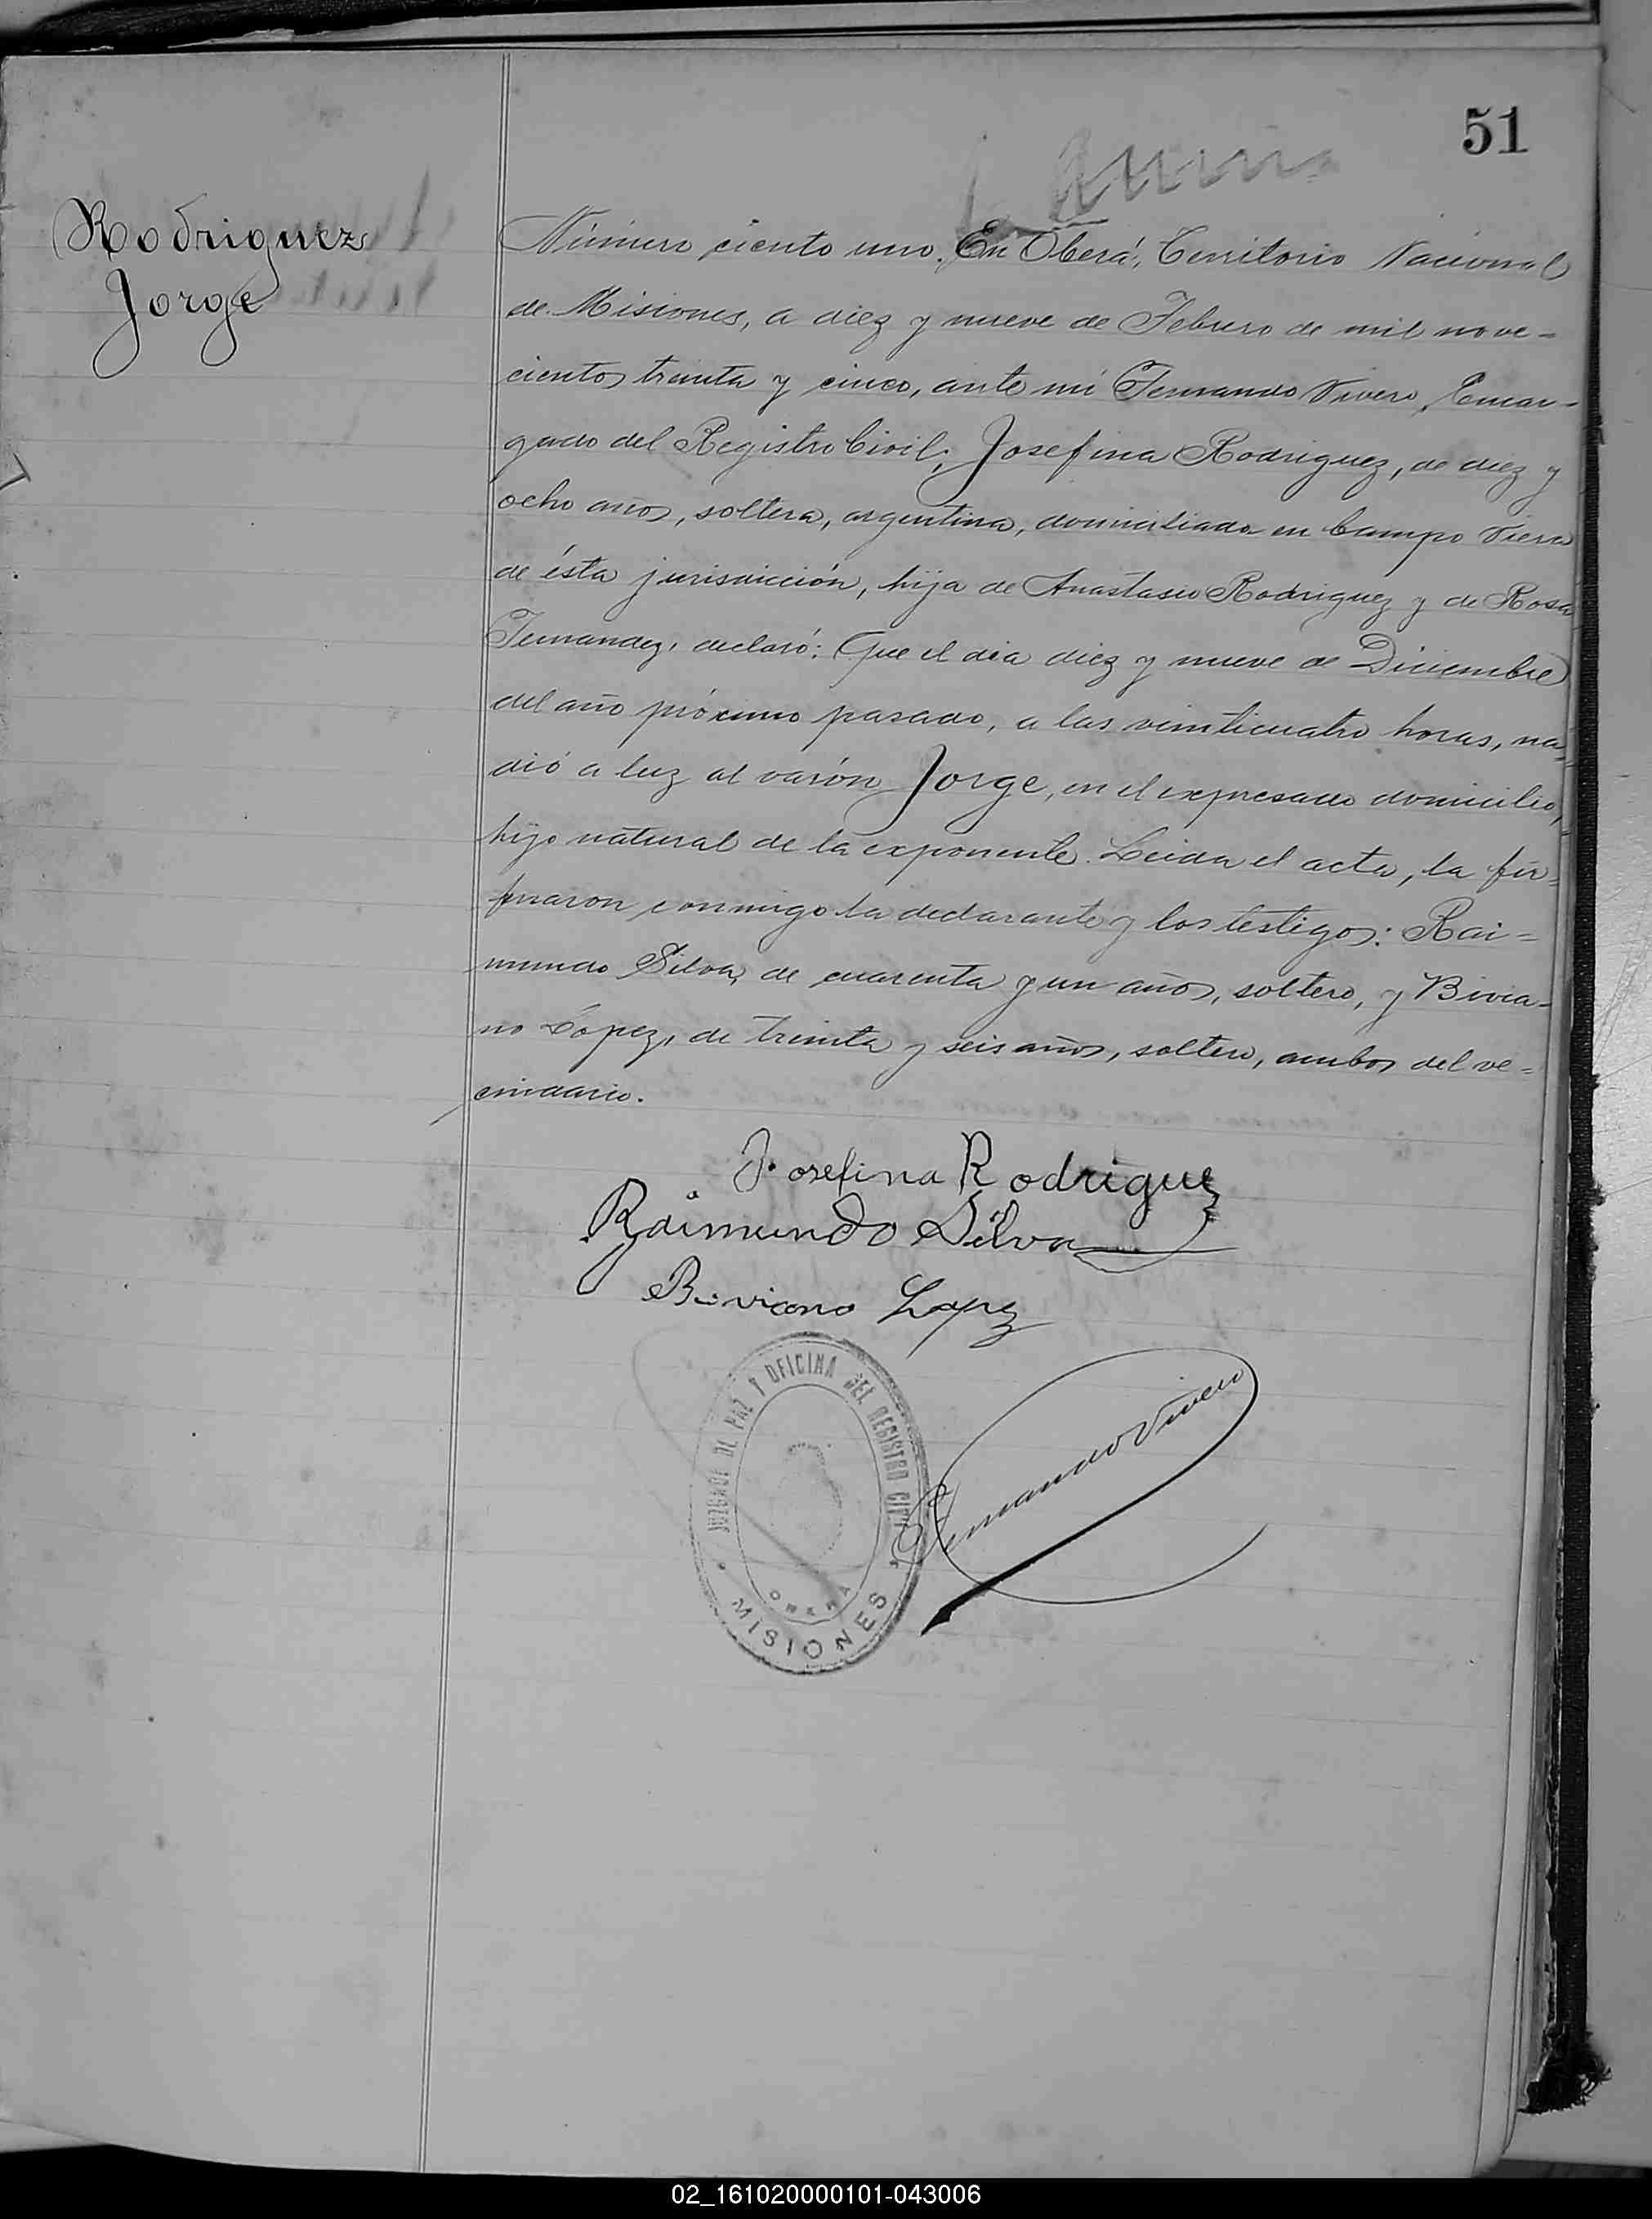 51
Rodriguez
Jorge
Número ciento uno. En Oberá, Territorio Nacional
de Misiones, a diez y nueve de Febrero de mil nove-
cientos treinta y cinco, ante mi Fernando Vivero, Encar-
gado del Registro Civil; Josefina Rodriguez, de diez y
ocho años, soltera, argentina, domiciliada en Campo Viera
de ésta jurisdicción, hija de Anastasio Rodriguez y de Rosa
Fernandez, declaró: Que el dia diez y nueve de Diciembre
del año próximo pasado, a las veinticuatro horas,
dió a luz al varón Jorge, en el expresado domicilio,
hijo natural de la exponente. Leida el acta, la fir-
maron conmigo la declarante y los testigos: Rai-
mundo Silva, de cuarenta y un años, soltero, y Bivia-
no López, de treinta y seis años, soltero, ambos del ve-
cindario.
Josefina Rodriguez
Raimundo Silva
Biviano Lopez
JUZGADO DE PAZ Y OFICINA DEL REGISTRO CIVIL
OBERA
MISIONES
Fernando Vivero
02_161020000101-043006